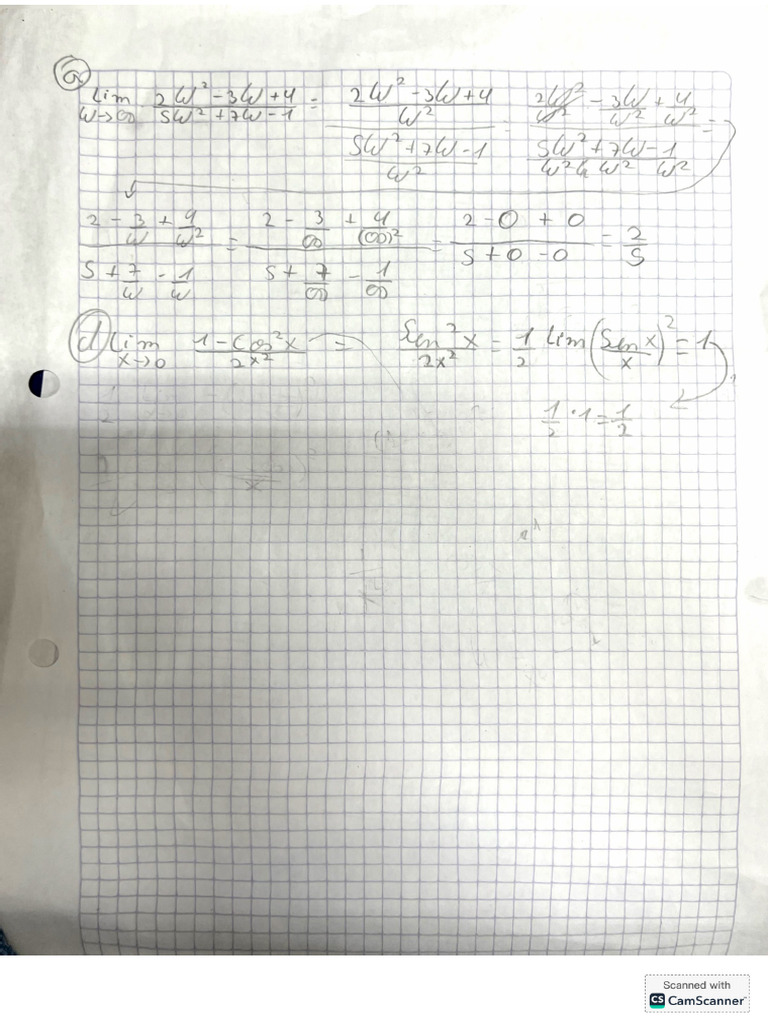 a
lim w→∞ (2w² - 3w + 4)/(5w² + 7w - 1) = ((2w² - 3w + 4)/w²)/((5w² + 7w - 1)/w²) = (2w²/w² - 3w/w² + 4/w²)/(5w²/w² + 7w/w² - 1/w²) =
(2 - 3/w + 4/w²)/(5 + 7/w - 1/w) = (2 - 3/∞ + 4/(∞)²)/(5 + 7/∞ - 1/∞) = (2 - 0 + 0)/(5 + 0 - 0) = 2/5
d) lim x→0 (1 - Cos²x)/(2x²) = Sen²x/(2x²) = 1/2 lim (Sen x/x)² = 1
1/2 · 1 = 1/2
Scanned with
CS CamScanner